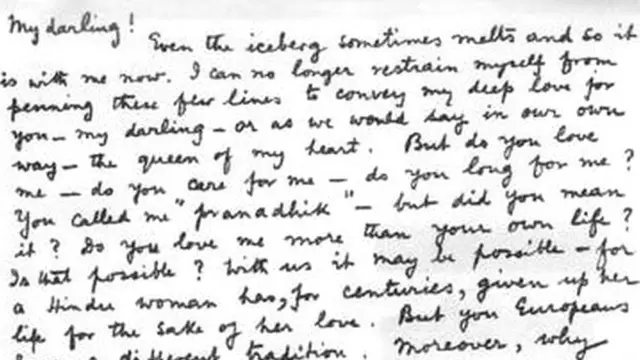 My darling!
Even the iceberg sometimes melts and so it
is with me now. I can no longer restrain myself from
penning these few lines to convey my deep love for
you — my darling — or as we would say in our own
way — the queen of my heart. But do you love
me — do you care for me — do you long for me?
You called me "pranadhik" — but did you mean
it? Do you love me more than your own life?
Is that possible? With us it may be possible — for
a Hindu woman has, for centuries, given up her
life for the sake of her love. But you Europeans
different tradition. Moreover, why